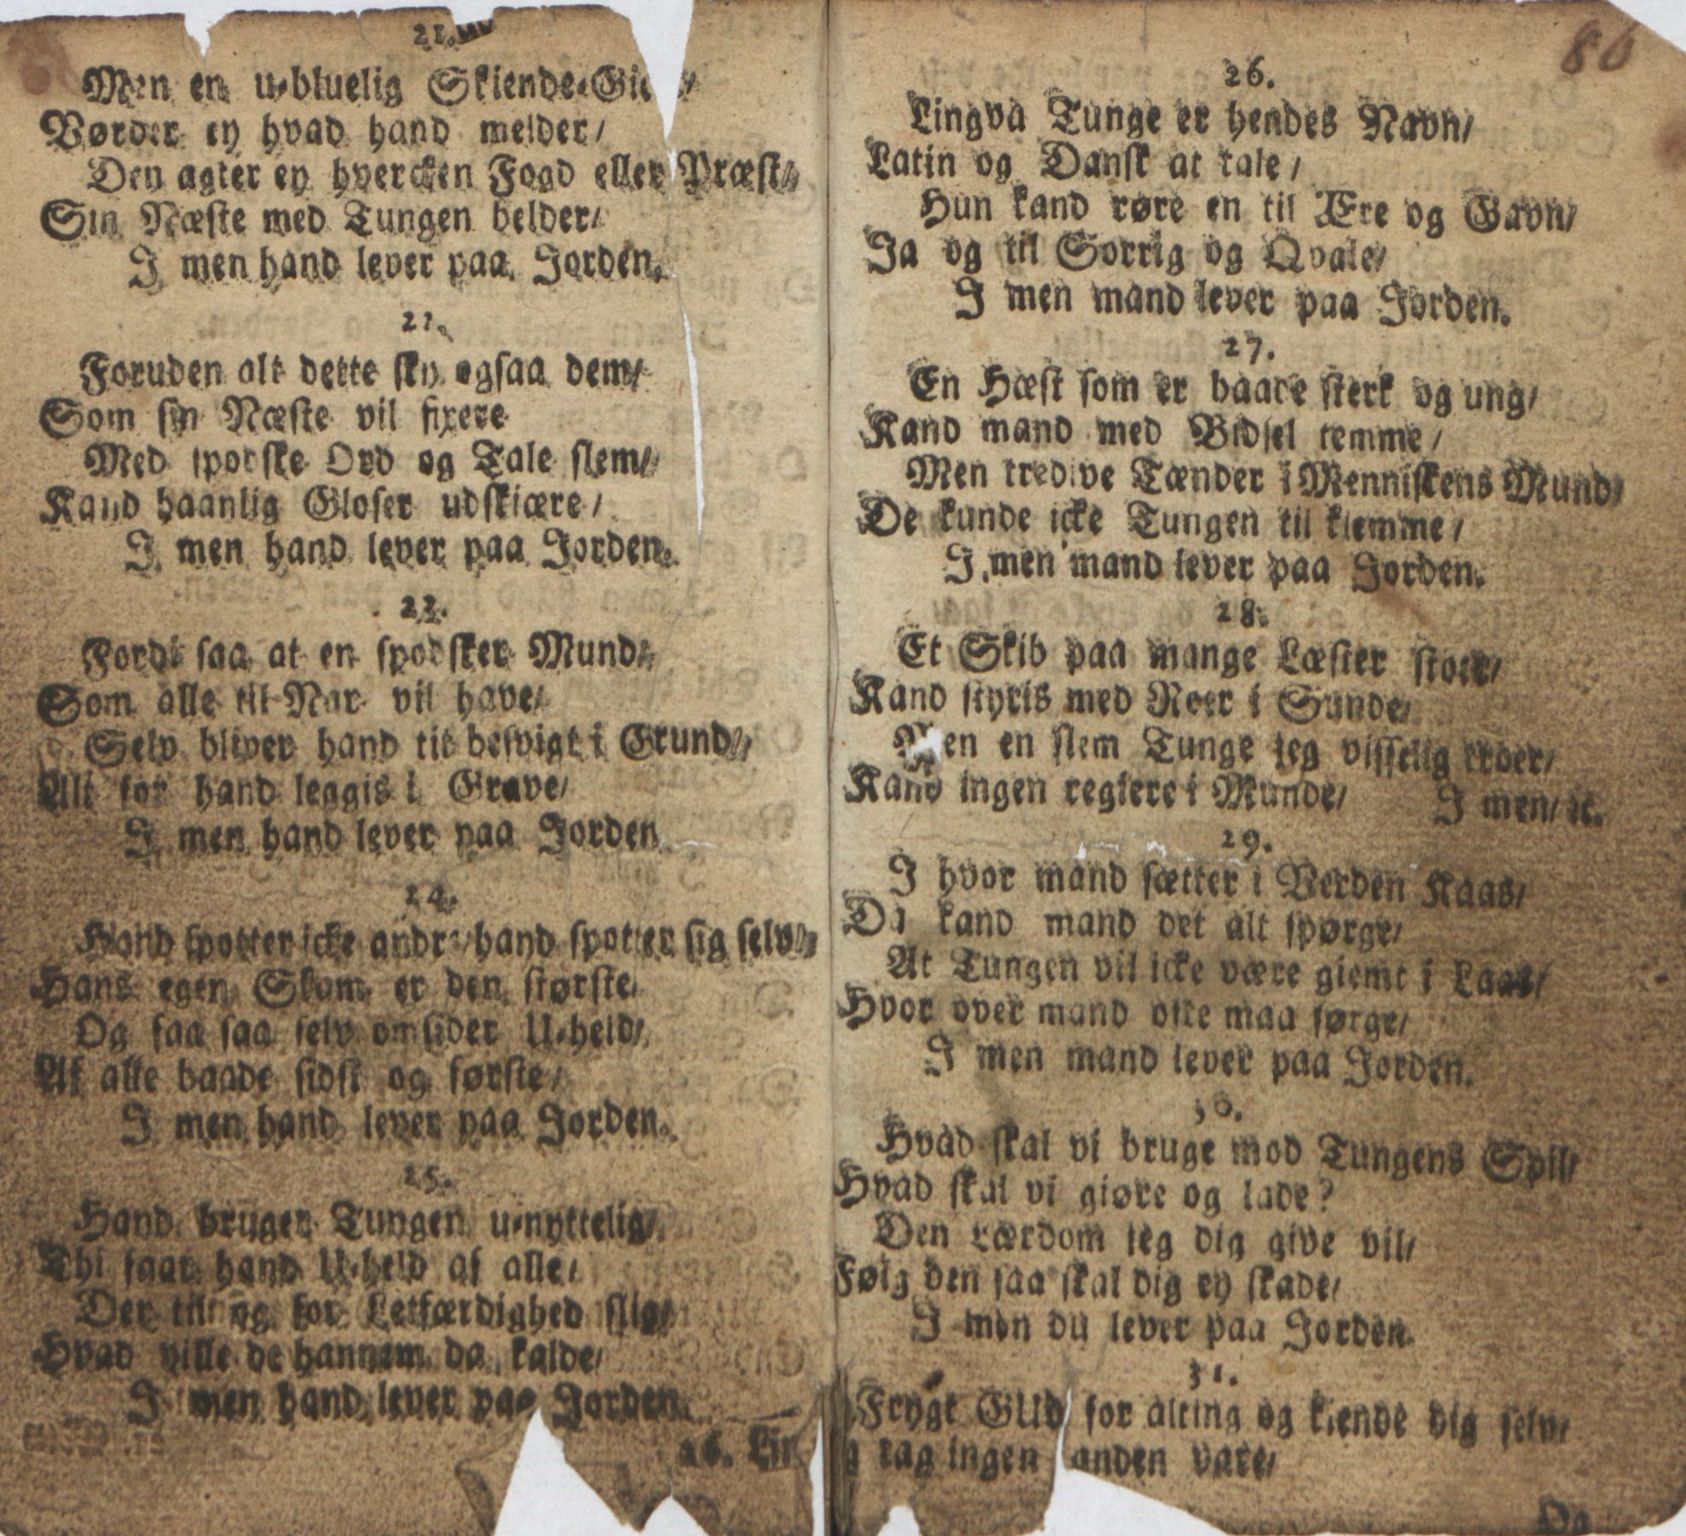 21.
Men en u-bluelig Skiende-
Vørder ey hvad hand melder/
Den agter ey hvercken Fogd eller Præst/
Sin Næste med Tungen belder/
I men hand lever paa Jorden.
22.
Foruden alt dette sky ogsaa dem/
Som sin Næste vil fixere
Med spodske Ord og Tale slem/
Kand haanlig Gloser udskiære/
I men hand lever paa Jorden.
23.
Fordi saa at en spodsker Mund/
Som alle til Nar vil have/
Selv bliver hand tit besvigt i Grund/
Alt for hand leggis i Grave/
I men hand lever paa Jorden
24.
Hand spotter icke andre/ hand spotter sig selv/
Hans egen Skam er den største/
Og faa saa selv omsider U-held/
Af alle baade sidst og første/
I men hand lever paa Jorden.
25.
Hand bruger Tungen u-nyttelig/
Thi faar hand U-held af alle/
Der til og for Letfærdighed slig/
Hvad ville de hannem da kalde/
I men hand lever paa Jorden.
26. Lin
86
26.
Lingva Tunge er hendes Navn/
Latin og Dansk at tale/
Hun kand røre en til Ære og Gavn/
Ja og til Sorrig og Qvale/
I men mand lever paa Jorden.
27.
En Hæst som er baade sterk og ung/
Kand mand med Bidsel temme/
Men tredive Tænder i Menniskens Mund/
De kunde icke Tungen til klemme/
I men mand lever paa Jorden.
28.
Et Skib paa mange Læster stoer/
Kand styris med Roer i Sunde/
Men en slem Tunge jeg visselig troer/
Kand ingen regiere i Munde/ I men/ ec.
29.
I hvor mand sætter i Verden Kaas/
Da kand mand det alt spørge/
At Tungen vil icke være giemt i Laas/
Hvor over mand ofte maa sørge/
I men mand lever paa Jorden.
30.
Hvad skal vi bruge mod Tungens Spil/
Hvad skal vi giøre og lade?
Den Lærdom jeg dig give vil/
Følg den saa skal dig ey skade/
I men du lever paa Jorden.
31.
Frygt GUd for alting og kiende dig selv/
tag ingen anden vare/
Da